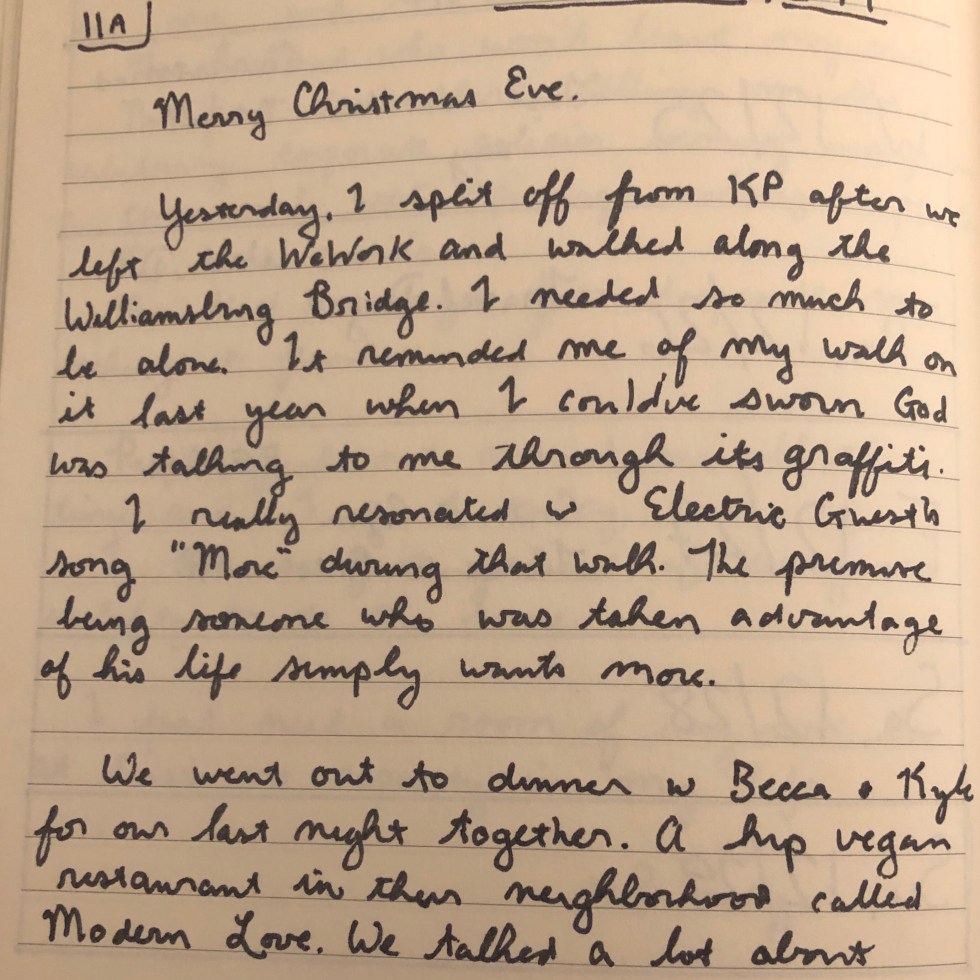 11A
Merry Christmas Eve.
Yesterday, I split off from KP after we
left the WeWork and walked along the
Williamsburg Bridge. I needed so much to
be alone. It reminded me of my walk on
it last year when I could've sworn God
was talking to me through its graffiti.
I really resonated w Electric Guest's
song "More" during that walk. The premise
being someone who was taken advantage
of his life simply wants more.
We went out to dinner w Becca + Kyle
for our last night together. A hip vegan
restaurant in their neighborhood called
Modern Love. We talked a lot about